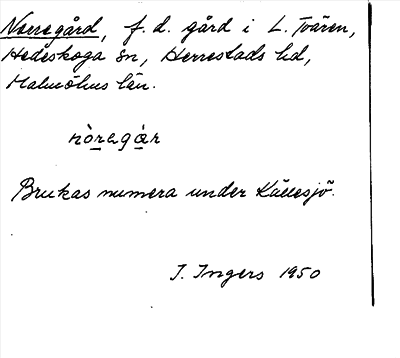 Norregård, f.d. gård i L. Tvären,
Hedeskoga sn, Herrestads hd,
Malmöhus län.
nòregár
Brukas numera under Källesjö.
I. Ingers 1950